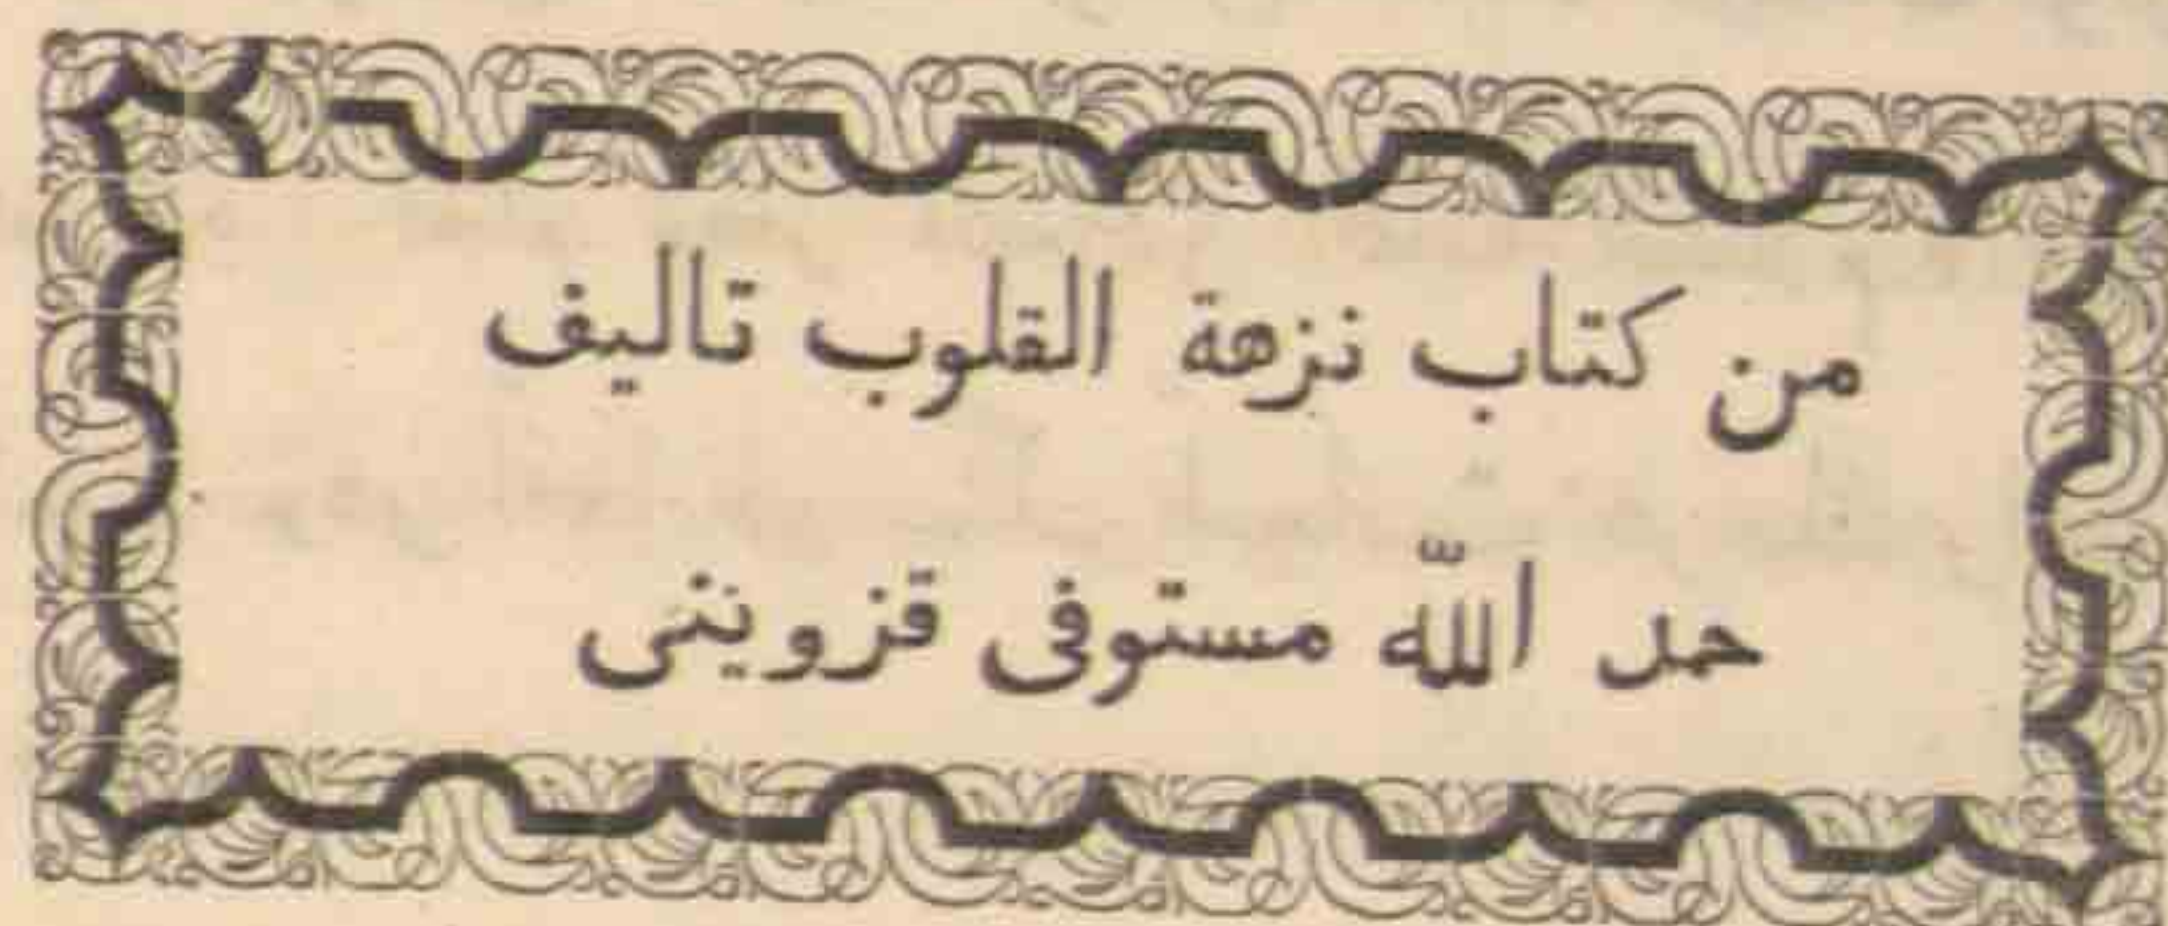 من كتاب نزهة القلوب تاليف
حمد اللّه مستوفى قزوينى